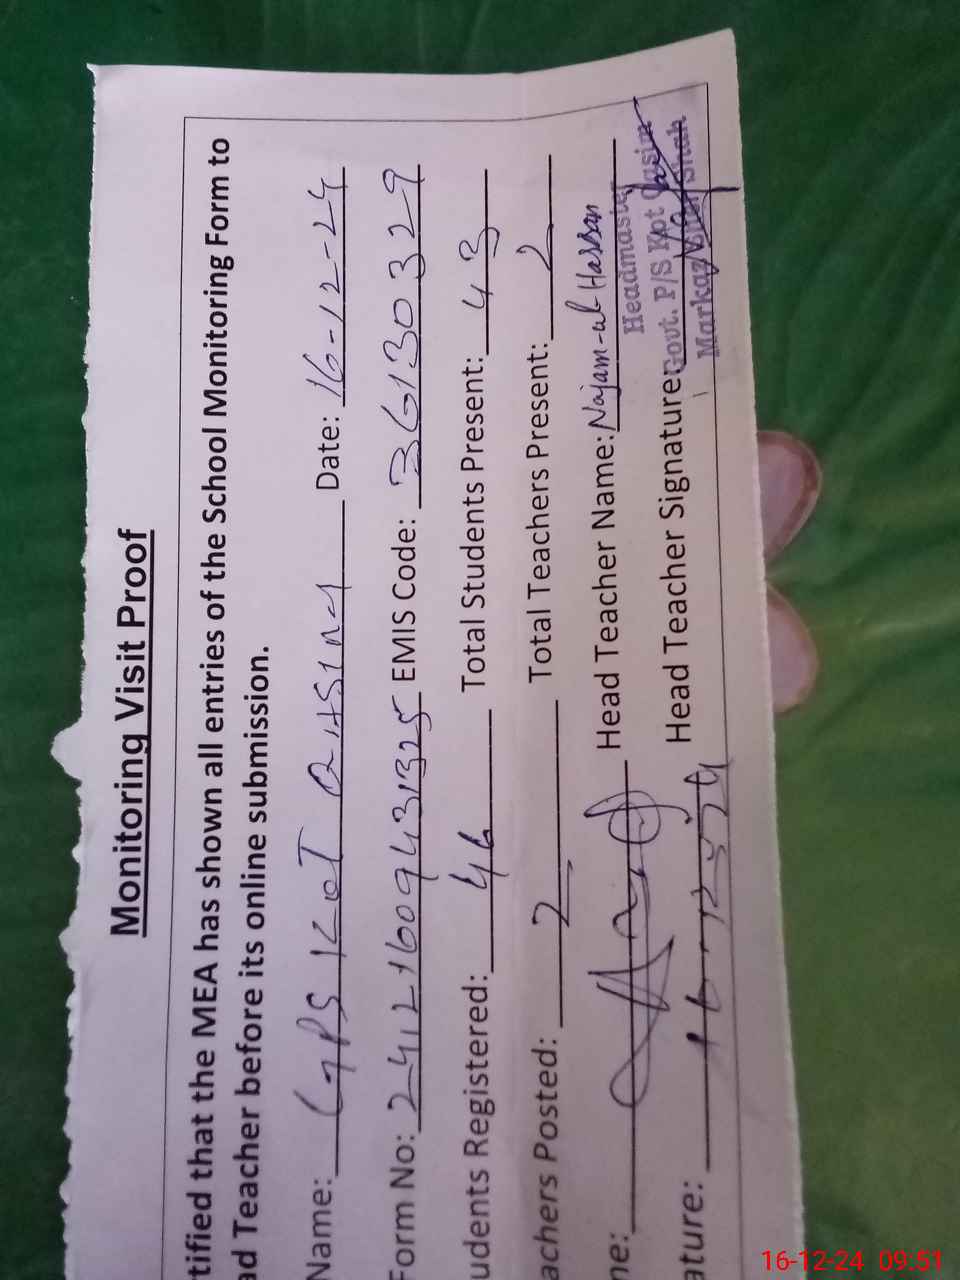 Monitoring Visit Proof
tified that the MEA has shown all entries of the School Monitoring Form to
ad Teacher before its online submission.
Name: GPS KOT Date: 16-12-24
Form No: 24121609431325 EMIS Code: 36130329
udents Registered: 46 Total Students Present: 43
achers Posted: 2 Total Teachers Present: 2
me: Head Teacher Name: Najam-ul-Hassan
ature: 16-12-24 Head Teacher Signature:
Headmaster
Govt. P/S Kot Qasim
Markaz Shah
16-12-24 09:51